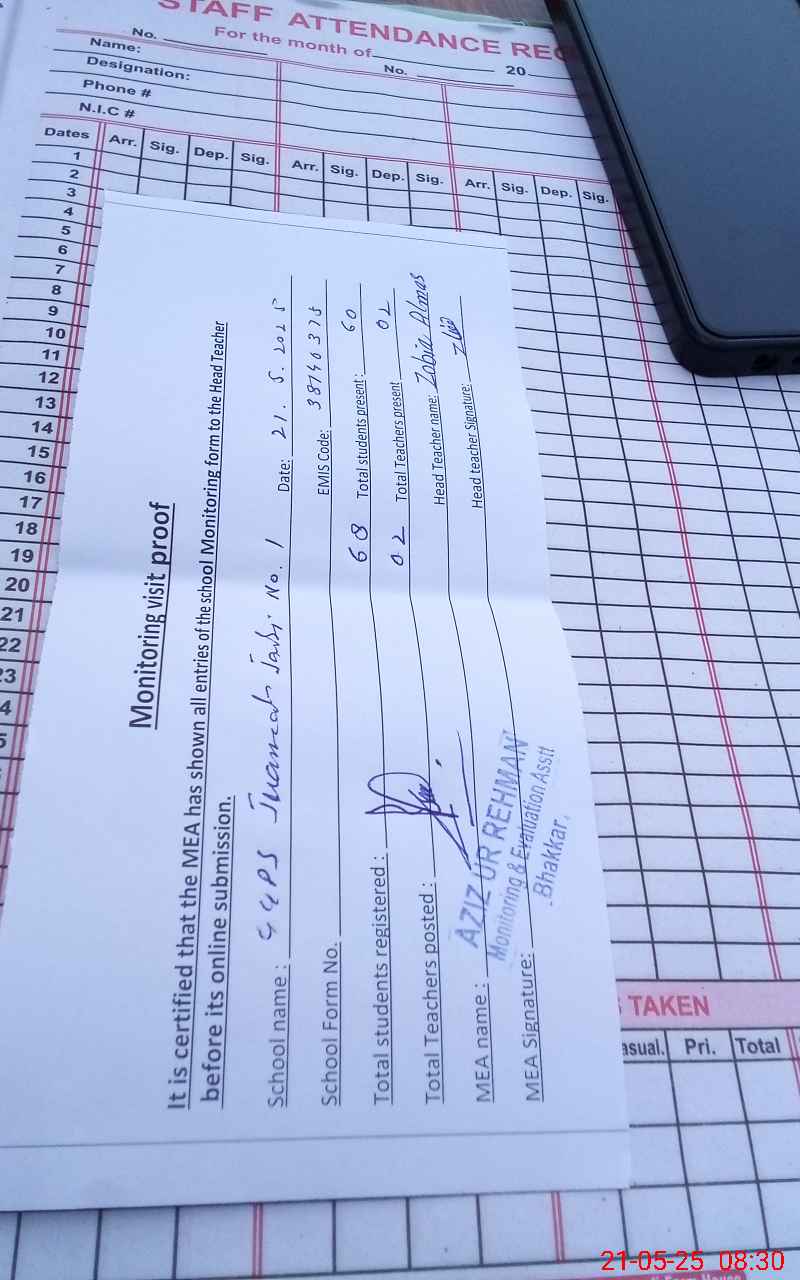 STAFF ATTENDANCE REG
For the month of
No.
No.
20
Name:
Designation:
Phone #
N.I.C #
Dates Arr. Sig. Dep. Sig. Arr. Sig. Dep. Sig. Arr. Sig. Dep. Sig.
1
2
3
4
5
6
7
8
9
10
11
12
13
14
15
16
17
18
19
20
21
22
23
4
5
Monitoring visit proof
It is certified that the MEA has shown all entries of the school Monitoring form to the Head Teacher
before its online submission.
School name : GGPS No. 1 Date: 21. 5. 2025
School Form No. EMIS Code: 38140375
Total students registered : 68 Total students present : 60
Total Teachers posted : 02 Total Teachers present 02
MEA name : Head Teacher name: Zobia Almas
MEA Signature: Head teacher Signature:
AZIZ UR REHMAN
Monitoring & Evaluation Asstt
Bhakkar.
TAKEN
asual. Pri. Total
21-05-25 08:30